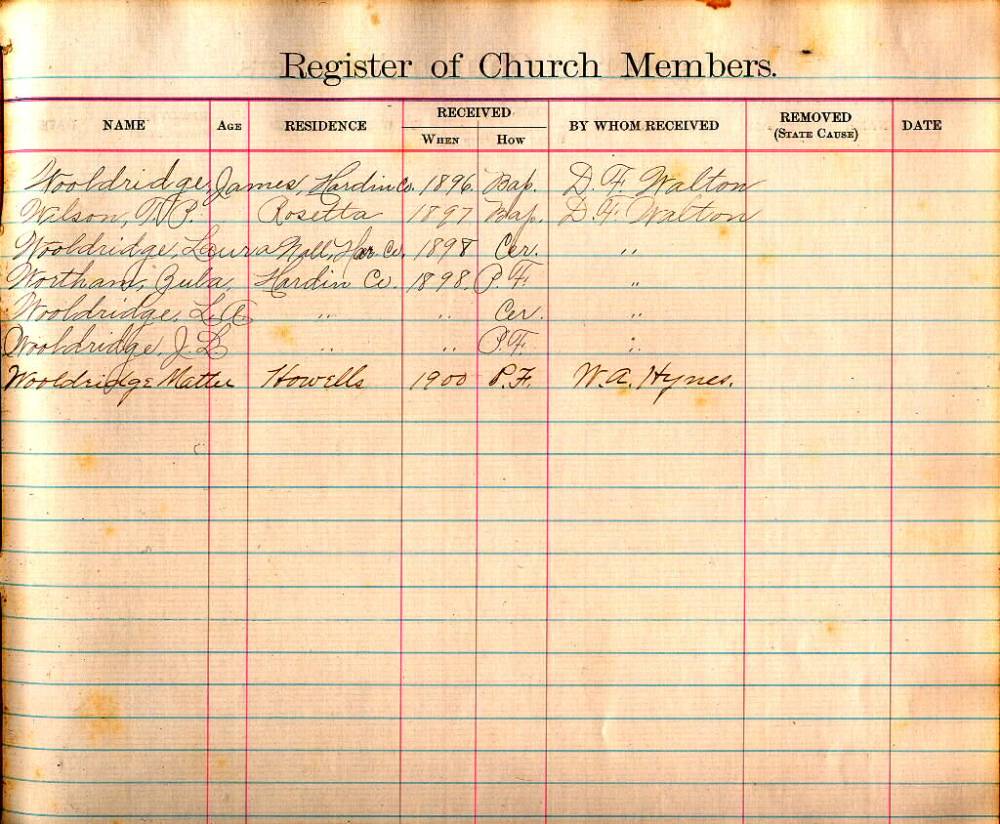 Register of Church Members.
RECEIVED
NAME AGE RESIDENCE WHEN HOW BY WHOM RECEIVED REMOVED (STATE CAUSE) DATE
Wooldridge, James, Hardin Co. 1896. Bap. D. F. Walton
Wilson, P. Rosetta 1897 Bap. D. F. Walton
Wooldridge, Laura Nall, Har. Co. 1898 Cer. "
Wortham, Zuba, Hardin Co. 1898. P. F. "
Wooldridge, L. " " Cer. "
Wooldridge, J. L " " P. F. "
Wooldridge Matter Howells 1900 P. F. W. A. Hynes.